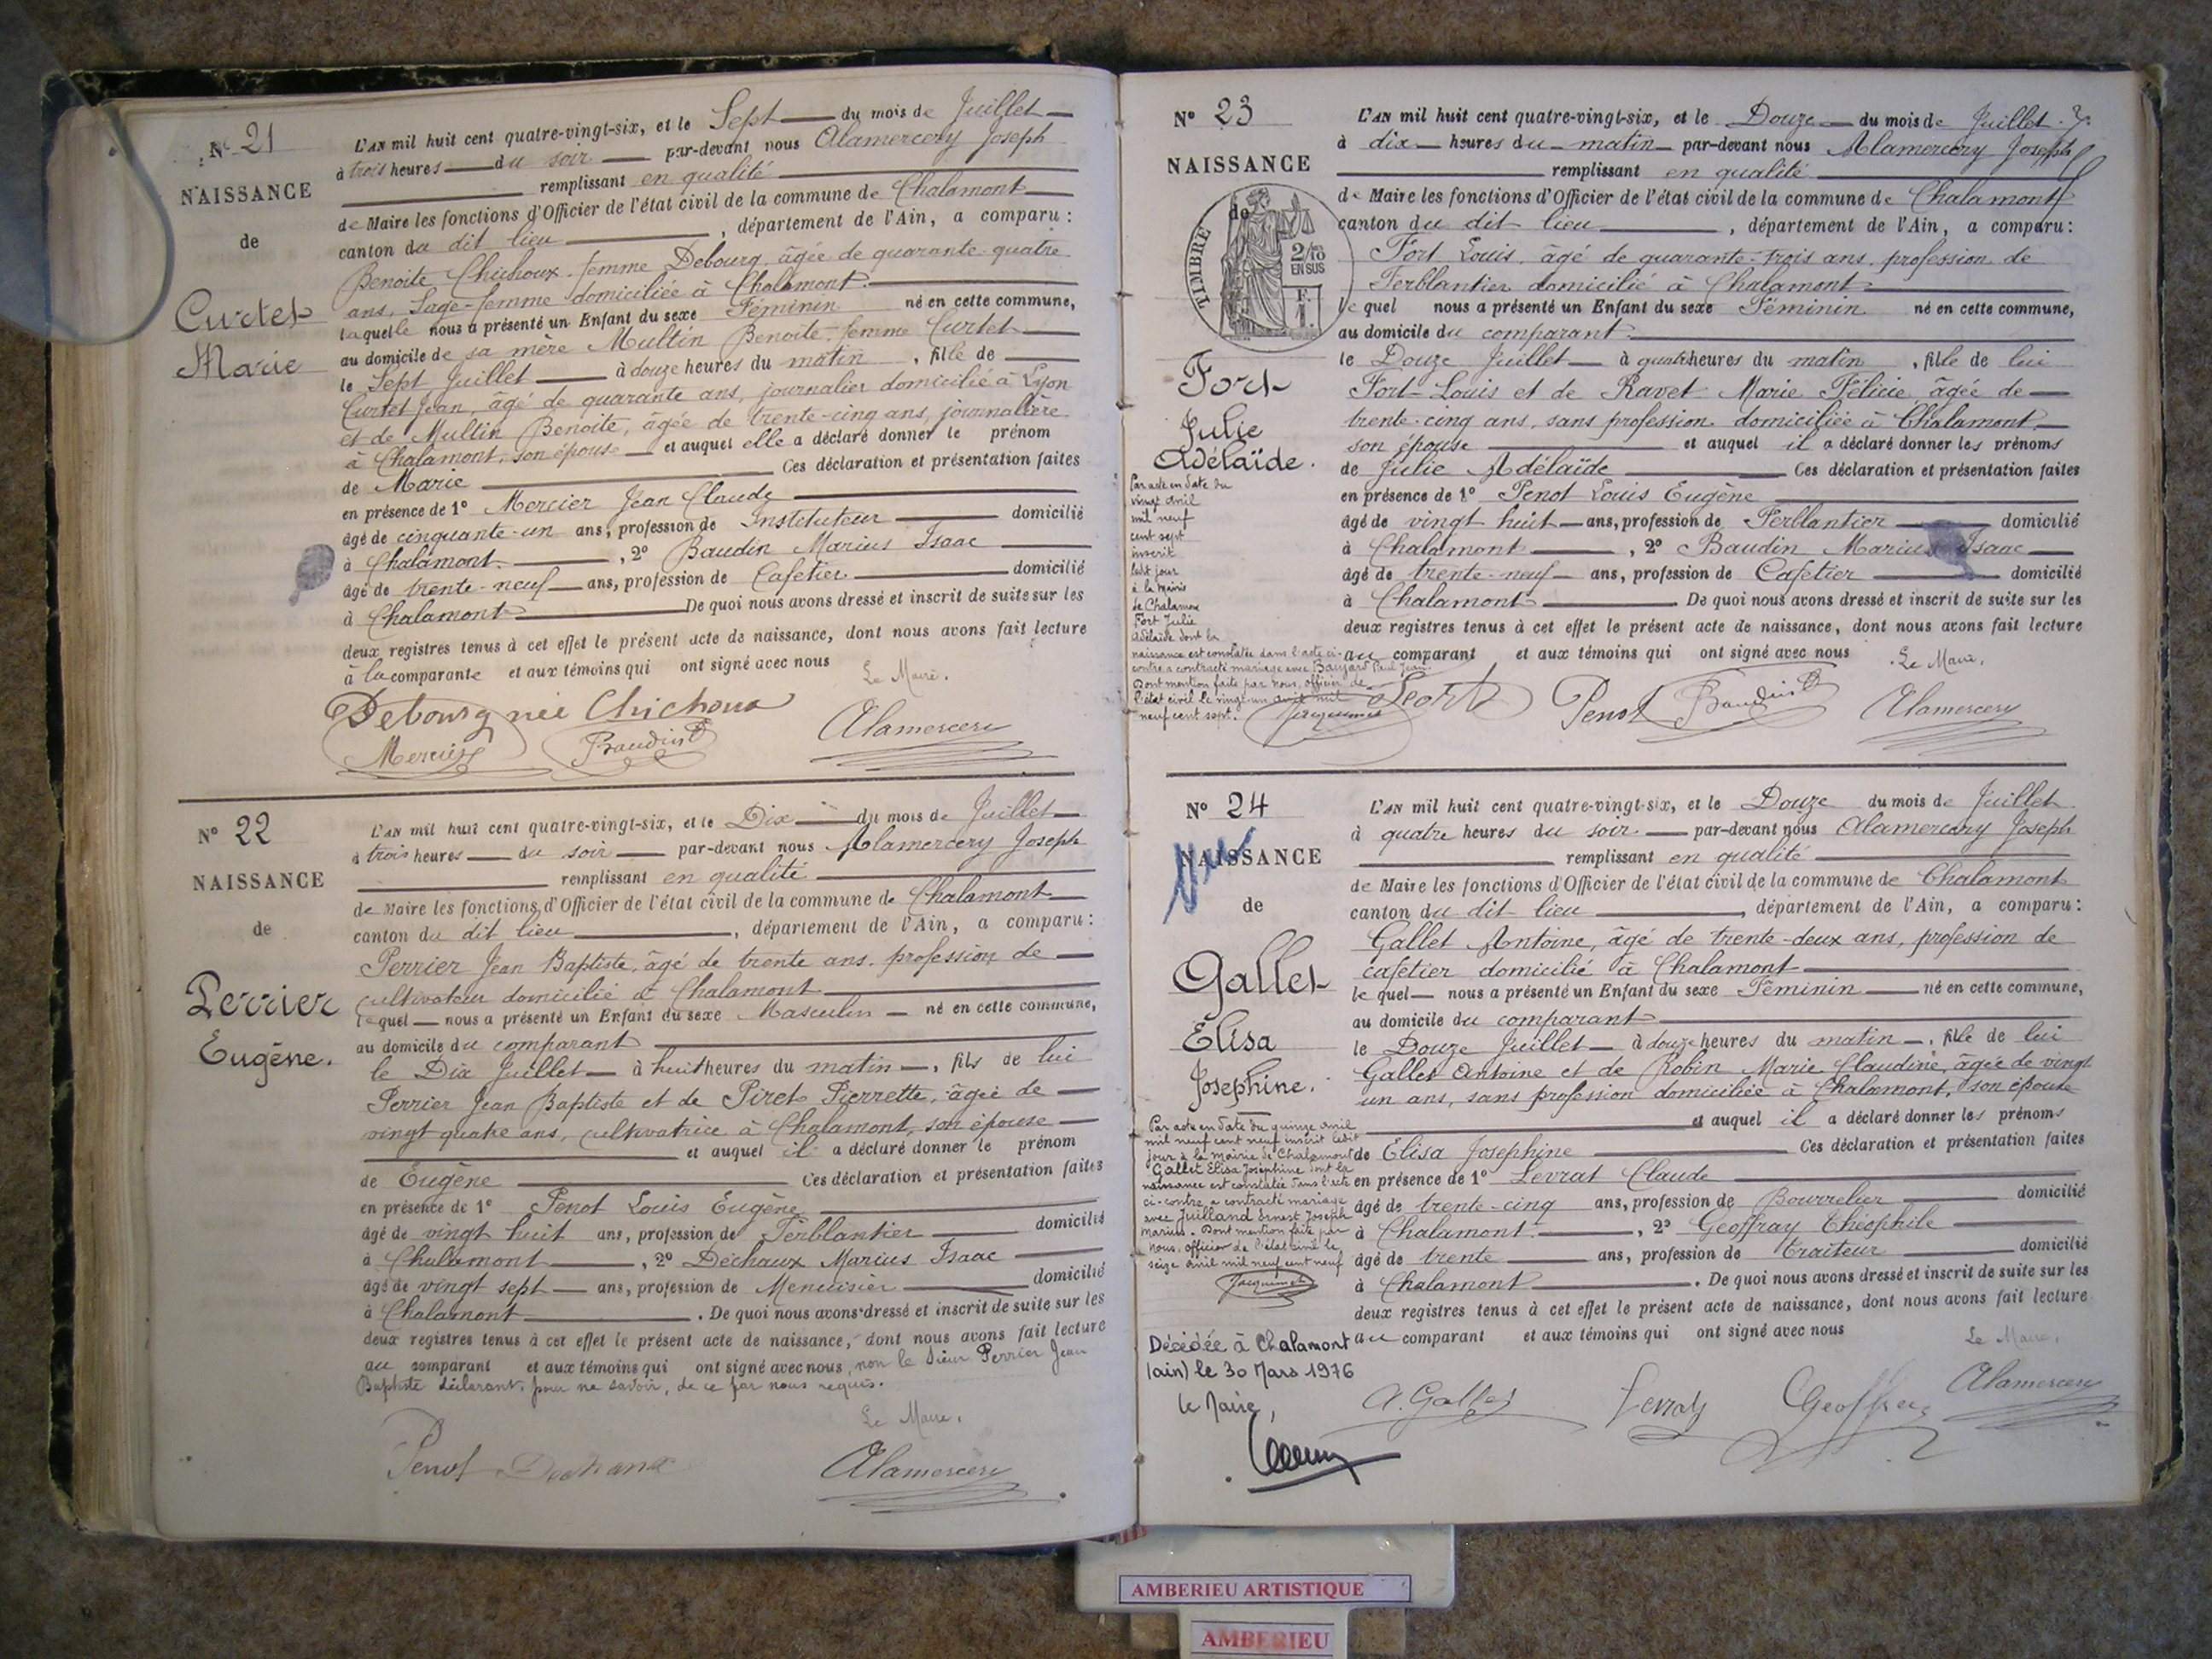 N° 21
NAISSANCE
de
Curtet
Marie
L'AN mil huit cent quatre-vingt-six, et le Sept du mois de Juillet
à trois heures du soir par-devant nous Alamercery Joseph
remplissant en qualité
de Maire les fonctions d'Officier de l'état civil de la commune de Chalamont
canton du dit lieu, département de l'Ain, a comparu :
Benoite Chichoux femme Debourg, âgée de quarante-quatre
ans, Sage-femme domiciliée à Chalamont
laquelle nous a présenté un Enfant du sexe Féminin né en cette commune,
au domicile de sa mère Multin Benoite femme Curtet
le Sept Juillet à douze heures du matin, fille de
Curtet Jean, âgé de quarante ans, journalier domicilié à Lyon
et de Multin Benoite, âgée de trente-cinq ans, journalière
à Chalamont, son épouse et auquel elle a déclaré donner le prénom
de Marie Ces déclaration et présentation faites
en présence de 1° Mercier Jean Claude
âgé de cinquante-un ans, profession de Instituteur domicilié
à Chalamont, 2° Baudin Marius Isaac
âgé de trente-neuf ans, profession de Cafetier domicilié
à Chalamont De quoi nous avons dressé et inscrit de suite sur les
deux registres tenus à cet effet le présent acte de naissance, dont nous avons fait lecture
à la comparante et aux témoins qui ont signé avec nous
Le Maire.
Debourg née Chichoux
Mercier Baudin Alamercery
N° 22
NAISSANCE
de
Perrier
Eugène.
L'AN mil huit cent quatre-vingt-six, et le Dix du mois de Juillet
à trois heures du soir par-devant nous Alamercery Joseph
remplissant en qualité
de Maire les fonctions d'Officier de l'état civil de la commune de Chalamont
canton du dit lieu, département de l'Ain, a comparu :
Perrier Jean Baptiste, âgé de trente ans, profession de
cultivateur domicilié à Chalamont
lequel nous a présenté un Enfant du sexe Masculin né en cette commune,
au domicile du comparant
le Dix Juillet à huit heures du matin, fils de lui
Perrier Jean Baptiste et de Piret Pierrette, âgée de
vingt quatre ans, cultivatrice à Chalamont, son épouse
et auquel il a déclaré donner le prénom
de Eugène Ces déclaration et présentation faites
en présence de 1° Penot Louis Eugène
âgé de vingt huit ans, profession de Ferblantier domicilié
à Chalamont, 2° Déchaux Marius Isaac
âgé de vingt sept ans, profession de Menuisier domicilié
à Chalamont. De quoi nous avons dressé et inscrit de suite sur les
deux registres tenus à cet effet le présent acte de naissance, dont nous avons fait lecture
au comparant et aux témoins qui ont signé avec nous, non le Sieur Perrier Jean
Baptiste déclarant, pour ne savoir, de ce par nous requis.
Le Maire,
Penot Alamercery
N° 23
NAISSANCE
de
TIMBRE
2/10
EN SUS
F.
1.
Fort
Julie
Adélaïde.
Par acte en date du
vingt avril
mil neuf
cent sept
inscrit
ledit jour
à la mairie
de Chalamont
Fort Julie
Adélaïde dont la
naissance est constatée dans l'acte ci-
contre a contracté mariage avec Paul Jean.
Dont mention faite par nous, officier de
l'état civil le vingt-un avril mil
neuf cent sept.
Jacquemet
L'AN mil huit cent quatre-vingt-six, et le Douze du mois de Juillet
à dix heures du matin par-devant nous Alamercery Joseph
remplissant en qualité
de Maire les fonctions d'Officier de l'état civil de la commune de Chalamont
canton du dit lieu, département de l'Ain, a comparu :
Fort Louis, âgé de quarante-trois ans, profession de
Ferblantier domicilié à Chalamont
le quel nous a présenté un Enfant du sexe Féminin né en cette commune,
au domicile du comparant
le Douze Juillet à quatre heures du matin, fille de lui
Fort Louis et de Ravet Marie Félicie, âgée de
trente-cinq ans, sans profession domiciliée à Chalamont
son épouse et auquel il a déclaré donner les prénoms
de Julie Adélaïde Ces déclaration et présentation faites
en présence de 1° Penot Louis Eugène
âgé de vingt huit ans, profession de Ferblantier domicilié
à Chalamont, 2° Baudin Marius Isaac
âgé de trente-neuf ans, profession de Cafetier domicilié
à Chalamont. De quoi nous avons dressé et inscrit de suite sur les
deux registres tenus à cet effet le présent acte de naissance, dont nous avons fait lecture
au comparant et aux témoins qui ont signé avec nous
Le Maire,
Fort Penot Baudin Alamercery
N° 24
NAISSANCE
de
Gallet
Elisa
Josephine.
Par acte en date du quinze avril
mil neuf cent neuf inscrit ledit
jour à la mairie de Chalamont
Gallet Elisa Joséphine dont la
naissance est constatée dans l'acte
ci-contre, a contracté mariage
avec Juilland Ernest Joseph
Marius. Dont mention faite par
nous, officier de l'état civil le
seize avril mil neuf cent neuf
Jacquemet
Décédée à Chalamont
(ain) le 30 Mars 1976
le Maire,
L'AN mil huit cent quatre-vingt-six, et le Douze du mois de Juillet
à quatre heures du soir par-devant nous Alamercery Joseph
remplissant en qualité
de Maire les fonctions d'Officier de l'état civil de la commune de Chalamont
canton du dit lieu, département de l'Ain, a comparu :
Gallet Antoine, âgé de trente-deux ans, profession de
cafetier domicilié à Chalamont
le quel nous a présenté un Enfant du sexe Féminin né en cette commune,
au domicile du comparant
le Douze Juillet à douze heures du matin, fille de lui
Gallet Antoine et de Robin Marie Claudine, âgée de vingt
un ans, sans profession domiciliée à Chalamont, son épouse
et auquel il a déclaré donner les prénoms
de Elisa Josephine Ces déclaration et présentation faites
en présence de 1° Levrat Claude
âgé de trente-cinq ans, profession de Bourrelier domicilié
à Chalamont, 2° Geoffray Théophile
âgé de trente ans, profession de traiteur domicilié
à Chalamont. De quoi nous avons dressé et inscrit de suite sur les
deux registres tenus à cet effet le présent acte de naissance, dont nous avons fait lecture
au comparant et aux témoins qui ont signé avec nous
Le Maire,
A. Gallet Levrat Geoffray Alamercery
AMBERIEU ARTISTIQUE
AMBERIEU